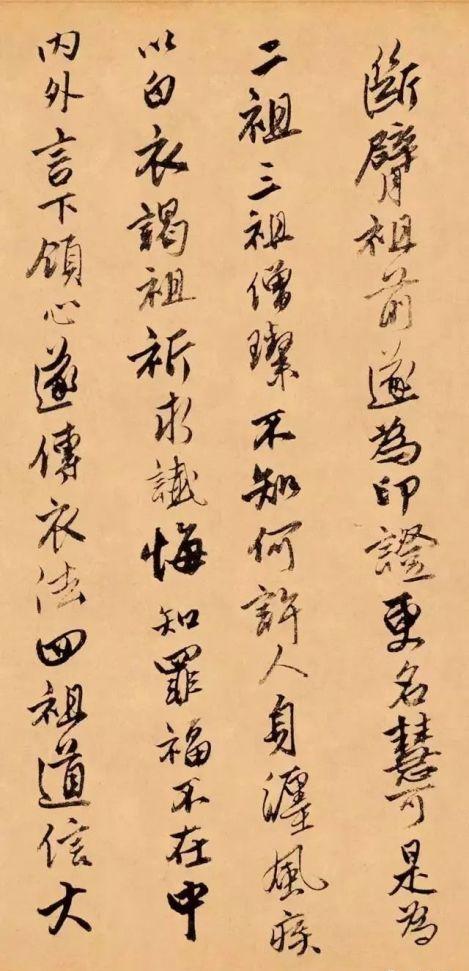 斷臂祖前遂為印證更名慧可是為
二祖三祖僧璨不知何許人身瀍風疾
以白衣謁祖祈求懺悔知罪福不在中
內外言下領心遂傳衣法四祖道信大